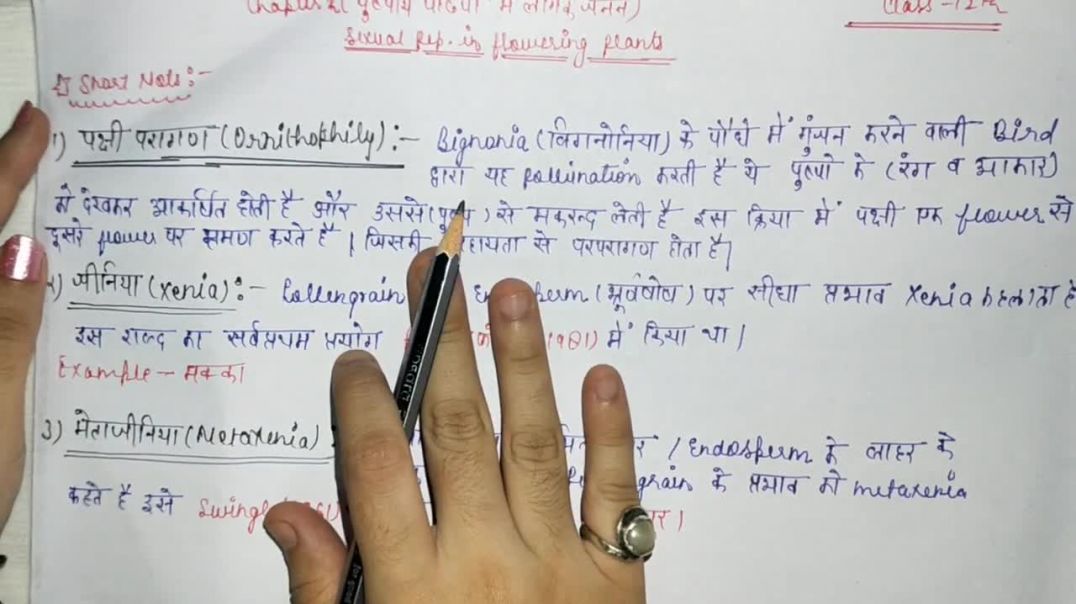 Chapter-2( पुष्पीय पादपों में लैंगिक जनन)
Class-12th
Sexual Rep. in flowering plants
Short Note:-
1) पक्षी परागण (Ornithophily) :- Bignonia (बिगनोनिया) के पौधे में गुंजन करने वाली Bird
द्वारा यह pollination करती है ये पुष्पो के (रंग व आकार)
को देखकर आकर्षित होती है और उससे (पुष्प) से मकरन्द लेती है इस क्रिया में पक्षी एक flower से
दूसरे flower पर भ्रमण करते है | जिसकी सहायता से परपरागण होता है|
जीनिया (Xenia) :- Pollengrain Endosperm (भ्रूणपोष) पर सीधा प्रभाव Xenia कहलाता है
इस शब्द का सर्वप्रथम प्रयोग में किया था |
Example - मक्का
3) मेताजीनिया (Metaxenia) / Endosperm के बाहर के
grain के प्रभाव को metaxenia
कहते है इसे